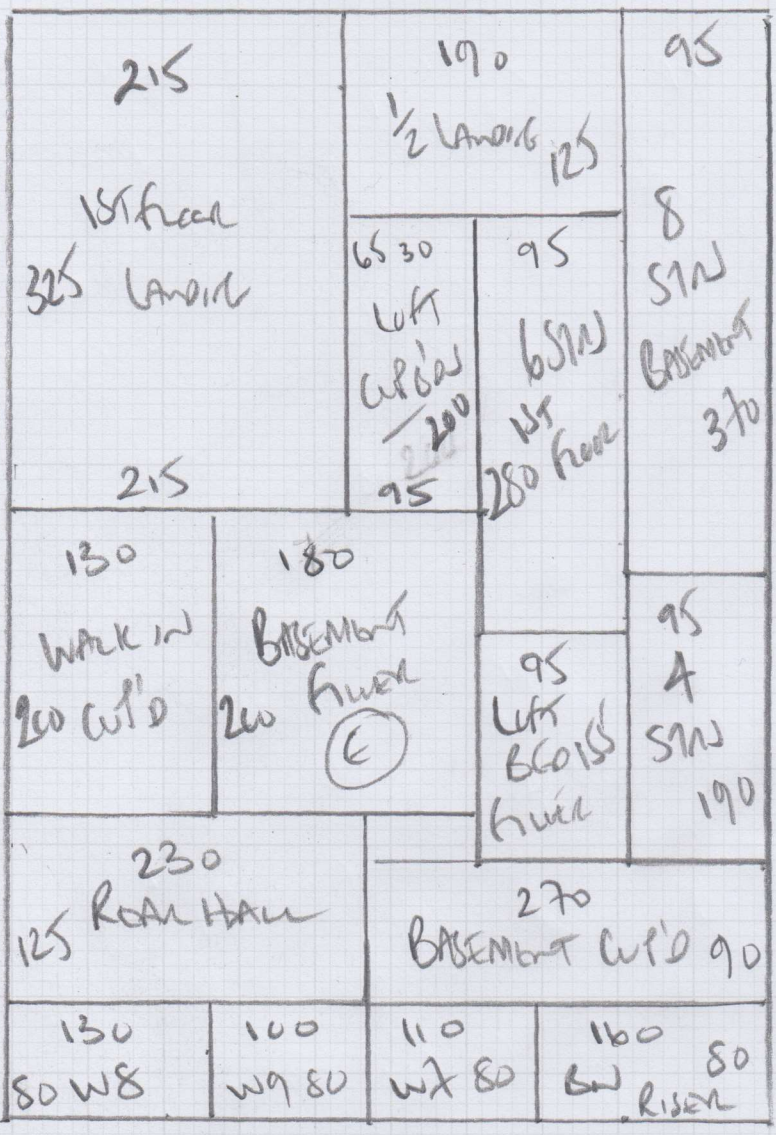 215
1ST FLOOR
325 LANDING
215
190
1/2 LANDING 125
95
8
STN
BASEMENT
370
65 30
LOFT
CUP'D
200
95
95
6 STN
1ST
280 FLOOR
130
WALK IN
200 CUP'D
180
BASEMENT
200 FILLER
E
95
LOFT
BED 155
FILLER
95
4
STN
190
230
125 REAR HALL
270
BASEMENT CUP'D 90
130
80 W8
100
W9 80
110
W7 80
160
80
RISER